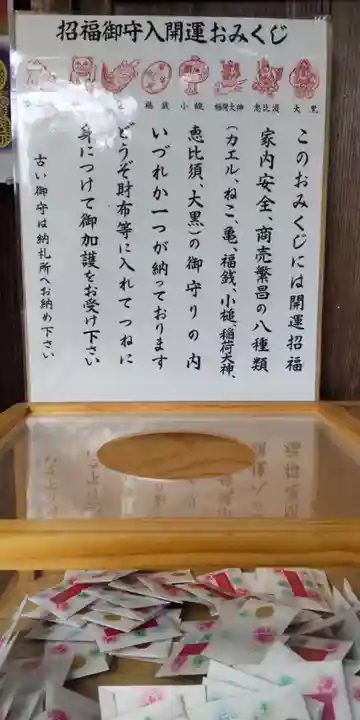 招福御守入開運おみくじ
福銭 小槌 稲荷大神 恵比須 大黒
このおみくじには開運招福
家内安全、商売繁昌の八種類
(カエル、ねこ、亀、福銭、小槌、稲荷大神、
恵比須、大黒)の御守りの内
いづれか一つが納っております
どうぞ財布等に入れてつねに
身につけて御加護をお受け下さい
古い御守は納札所へお納め下さい